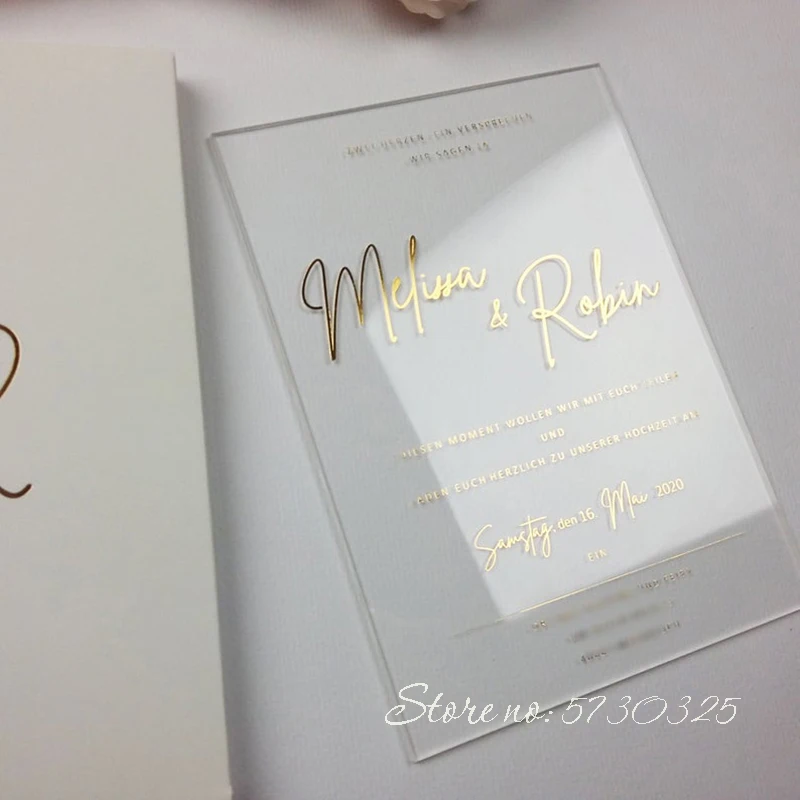 EIN VERSPRECHEN
WIR SAGEN JA
Melissa
& Robin
DIESEN MOMENT WOLLEN WIR MIT EUCH TEILEN
UND
LADEN EUCH HERZLICH ZU UNSERER HOCHZEIT AM
Samstag, den 16. Mai 2020
EIN
UND FEIER
Store no: 5730325